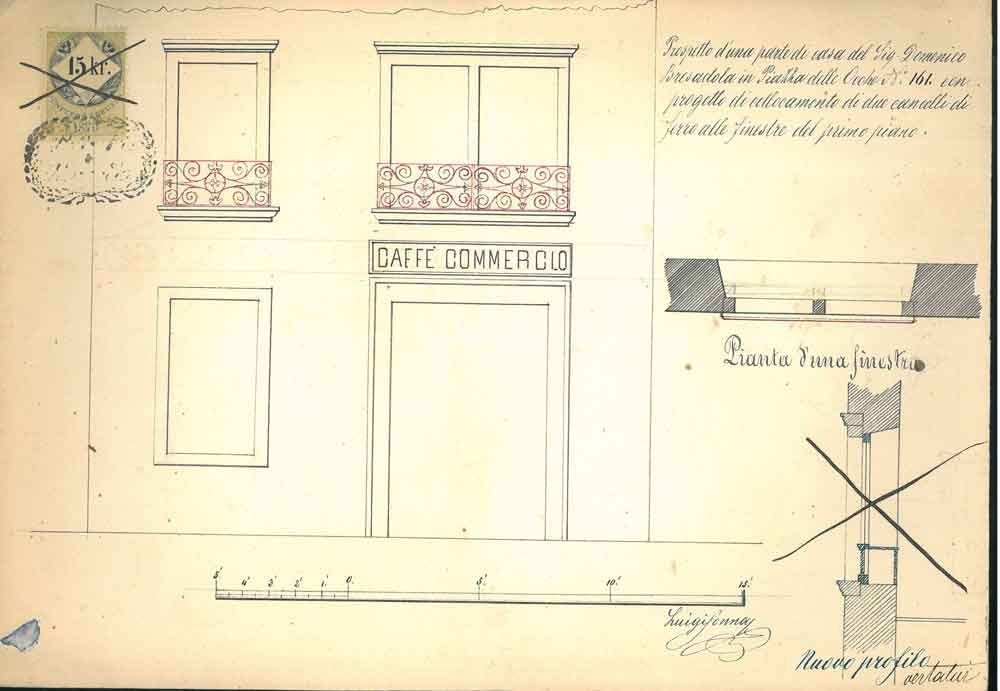 15 kr.
Prospetto d'una parte di casa del Sig. Domenico
Bresadola in Piazza delle Oche N.° 161. con
progetto di collocamento di due cancelli di
ferro alle finestre del primo piano.
CAFFÈ COMMERCIO
Pianta d'una finestra
5' 4' 3' 2' 1' 0. 5' 10' 15'
Luigi
Nuovo profilo
vertatur